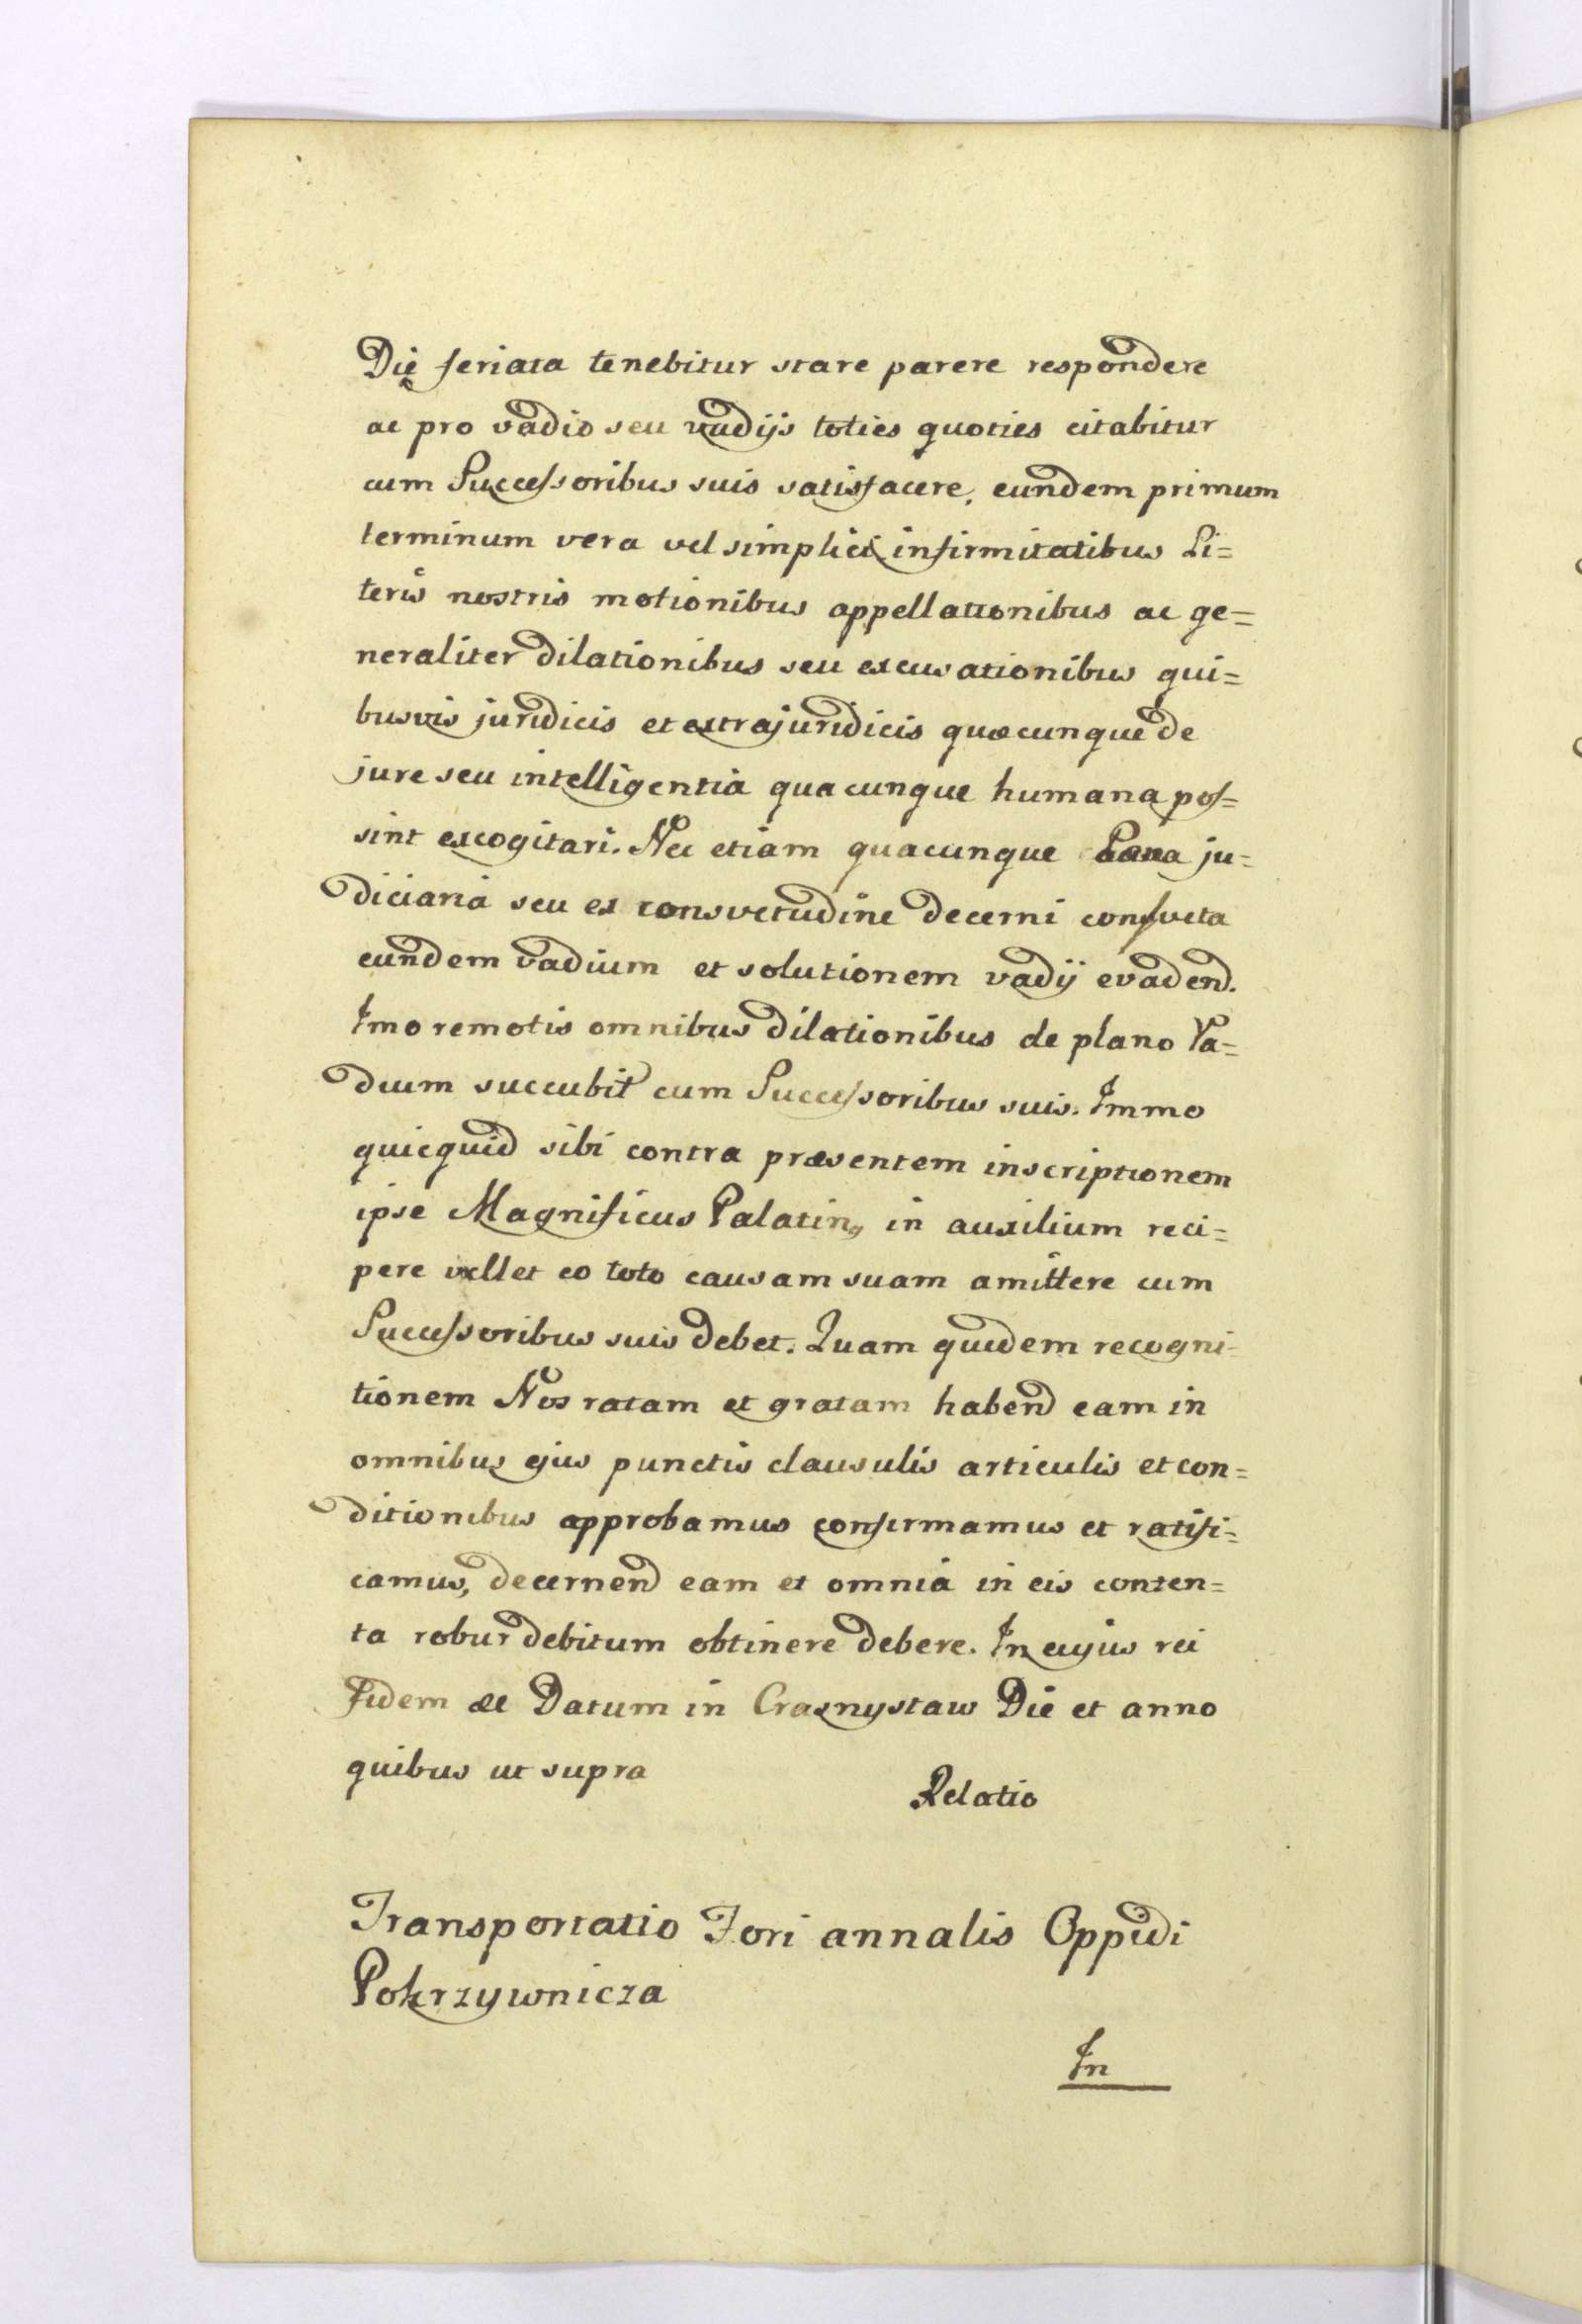 Die feriata tenebitur stare parere respondere
ac pro vadio seu vadijs toties quoties citabitur
cum Successoribus suis satisfacere, eundem primum
terminum vera vel simplici infirmitatibus Li=
teris nostris motionibus appellationibus ac ge=
neraliter dilationibus seu excusationibus qui=
busvis juridicis et extrajuridicis quæcunque de
jure seu intelligentia quacunque humana pos=
sint excogitari. Nec etiam quacunque Pœna ju=
diciaria seu ex consvetudine decerni consveta
eundem vadium et solutionem vadij evadend.
Imo remotis omnibus dilationibus de plano Va=
dium succubit cum Successoribus suis. Immo
quicquid sibi contra præsentem inscriptionem
ipse Magnificus Palatin9 in auxilium reci=
pere vellet eo toto causam suam amittere cum
Successoribus suis debet. Quam quidem recogni-
tionem Nos ratam et gratam habend eam in
omnibus ejus punctis clausulis articulis et con=
ditionibus approbamus confirmamus et ratifi=
camus, decernend eam et omnia in eis conten=
ta robur debitum obtinere debere. In cujus rei
Fidem &c Datum in Crasnystaw Die et anno
quibus ut supra
Relatio
Transportatio Fori annalis Oppidi
Pokrzywnicza
In